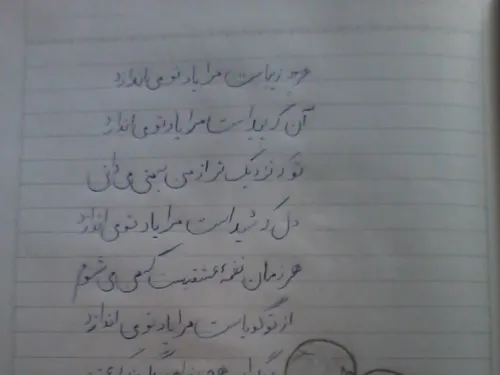 هرچه زیباست مرا یاد تو می اندازد
آن که بیداست مرا یاد تو می اندازد
تو که نزدیک تر از من به منی می دانی
دل که شیداست مرا یاد تو می اندازد
هر زمان نغمهٔ عشقیست که می شنوم
از تو گویاست مرا یاد تو می اندازد